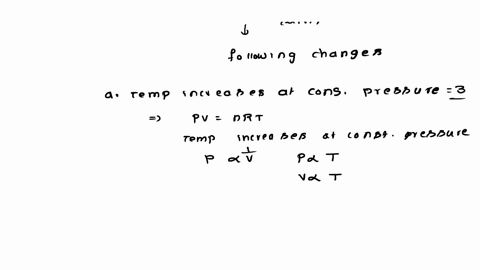 following changes
a. Temp increases at cons. pressure = 3
=> PV = nRT
Temp increases at const. pressure
P ∝ 1/V P ∝ T
V ∝ T